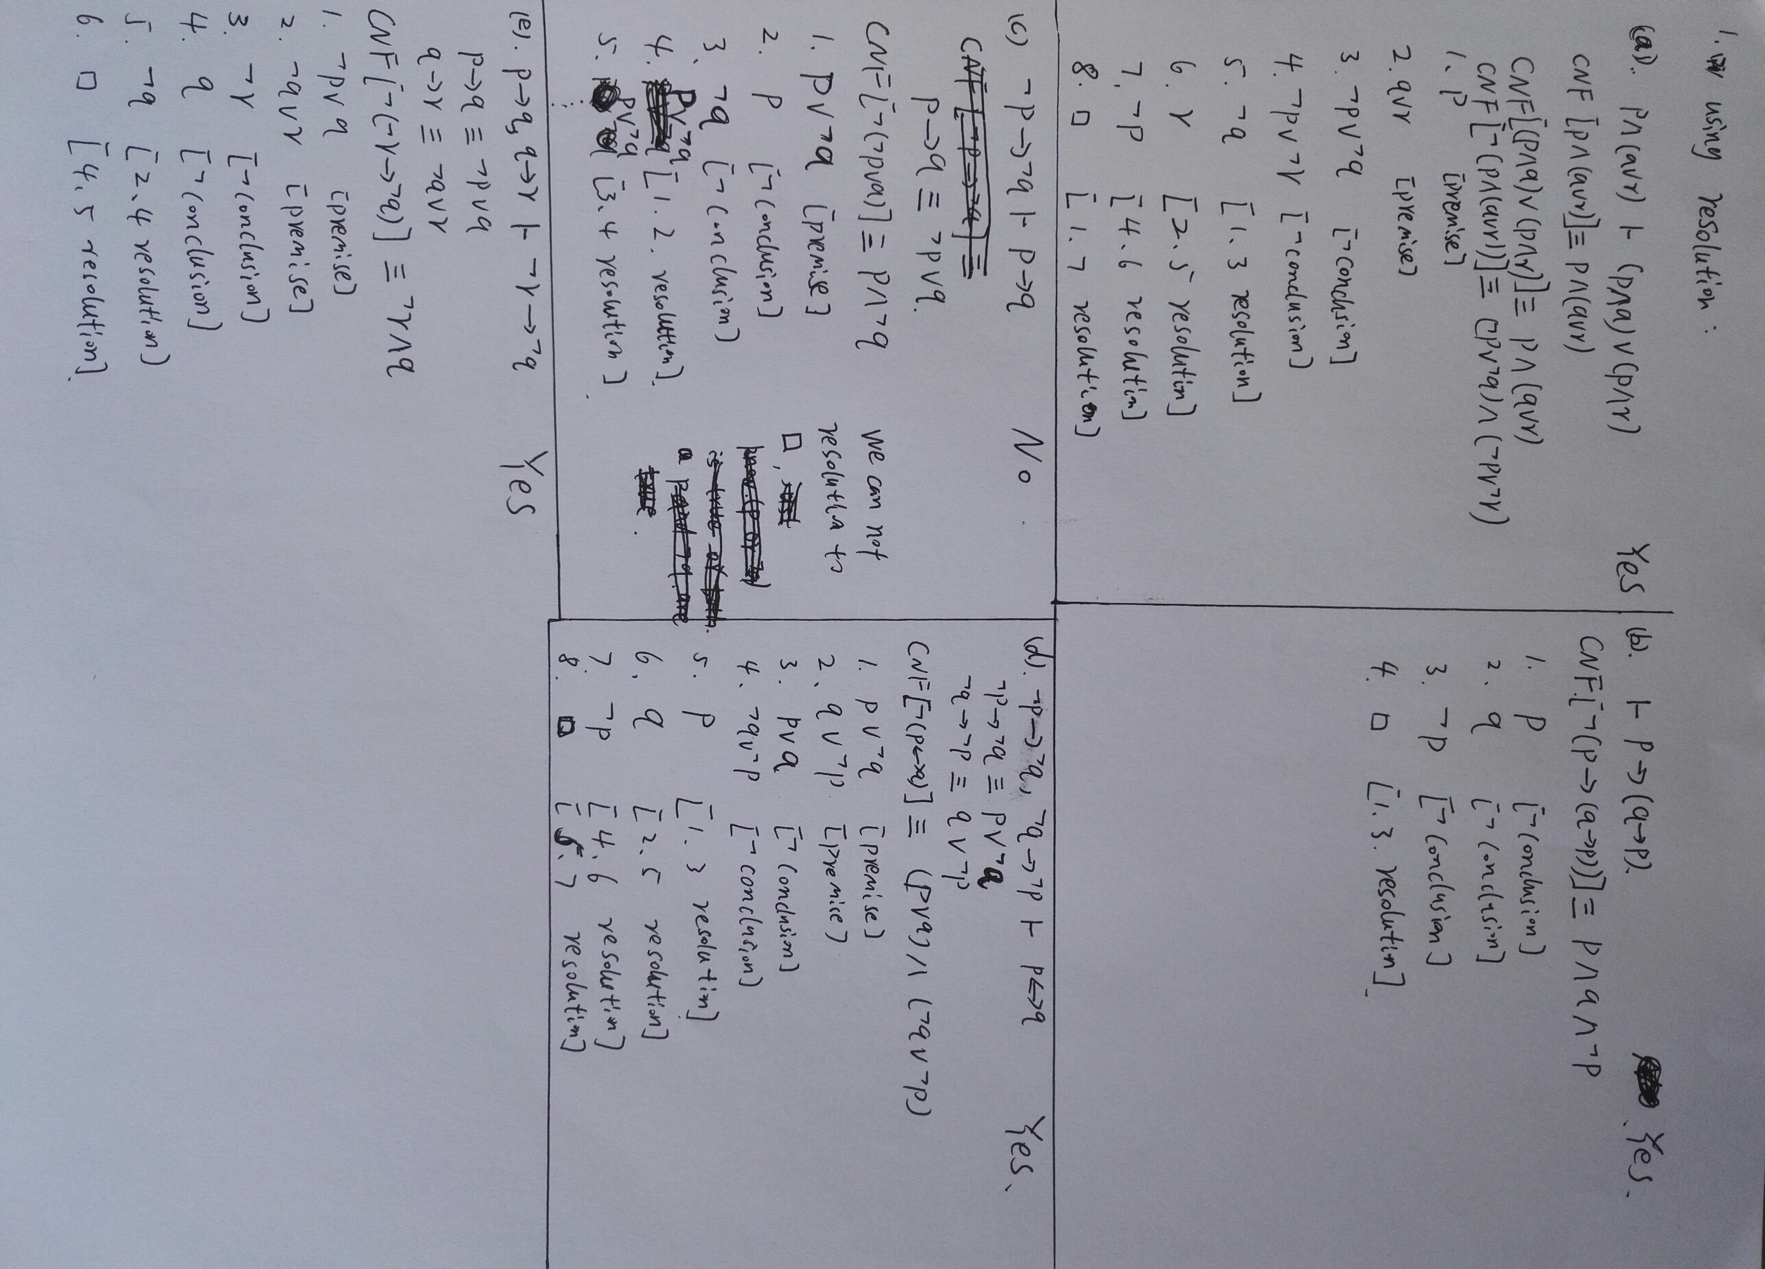 1. using resolution:
(a). p∧(q∨r) ⊢ (p∧q)∨(p∧r) Yes
CNF[p∧(q∨r)] ≡ p∧(q∨r)
CNF[(p∧q)∨(p∧r)] ≡ p∧(q∨r)
CNF[¬(p∧(q∨r))] ≡ (¬p∨¬q)∧(¬p∨¬r)
1. p [premise]
2. q∨r [premise]
3. ¬p∨¬q [¬conclusion]
4. ¬p∨¬r [¬conclusion]
5. ¬q [1.3 resolution]
6. r [2.5 resolution]
7. ¬p [4.6 resolution]
8. □ [1.7 resolution]
(b). ⊢ p→(q→p). Yes.
CNF[¬(p→(q→p))] ≡ p∧q∧¬p
1. p [¬conclusion]
2. q [¬conclusion]
3. ¬p [¬conclusion]
4. □ [1.3. resolution].
(c) ¬p→¬q ⊢ p→q No.
CNF[¬p→¬q] ≡
p→q ≡ ¬p∨q.
CNF[¬(¬p∨q)] ≡ p∧¬q
1. p∨¬q [premise]
2. p [¬conclusion]
3. ¬q [¬conclusion]
4. p∨¬q [1.2. resolution].
5. p∨¬q [3.4 resolution].
We can not
resolution to
□,
(d). ¬p→¬q, ¬q→¬p ⊢ p↔q Yes.
¬p→¬q ≡ p∨¬q
¬q→¬p ≡ q∨¬p
CNF[¬(p↔q)] ≡ (p∨q)∧(¬q∨¬p)
1. p∨¬q [premise]
2. q∨¬p [premise]
3. p∨q [¬conclusion]
4. ¬q∨¬p [¬conclusion]
5. p [1.3 resolution]
6. q [2.5 resolution]
7. ¬p [4.6 resolution]
8. □ [5.7 resolution]
(e). p→q, q→r ⊢ ¬r→¬q Yes
p→q ≡ ¬p∨q
q→r ≡ ¬q∨r
CNF[¬(¬r→¬q)] ≡ ¬r∧q
1. ¬p∨q [premise]
2. ¬q∨r [premise]
3. ¬r [¬conclusion]
4. q [¬conclusion]
5. ¬q [2.4 resolution]
6. □ [4.5 resolution].